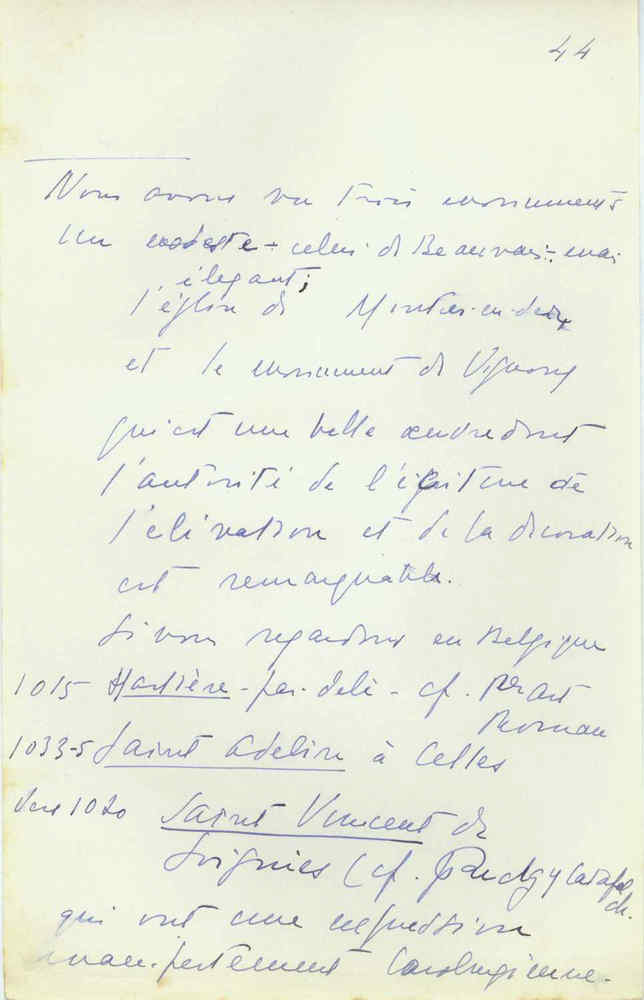 44
Nous avons vu trois monuments
un modeste - celui de Beauvais - mais
élégant;
l'église de Montier-en-der
et le monument de Vignory
qui est une belle œuvre dont
l'autorité de l'écriture de
l'élévation et de la décoration
est remarquable.
Si nous regardons en Belgique
1015 Hastière - par-delà - cf. Art
Roman
1033-5 Saint Adelin à Celles
Vers 1020 Saint Vincent de
Soignies (cf. Puig y Cadafal
ch.
qui ont une expression
manifestement Carolingienne.